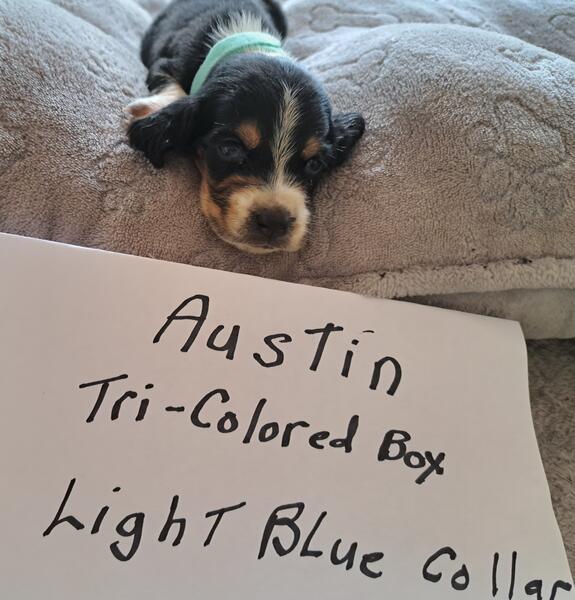 Austin
Tri-Colored Box
Light Blue Collar